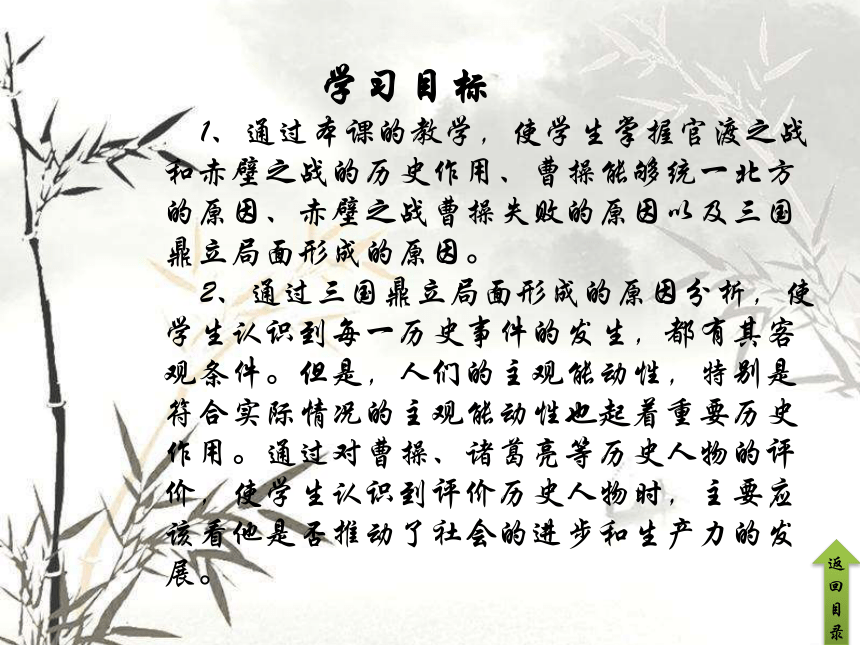 学习目标
1、通过本课的教学，使学生掌握官渡之战
和赤壁之战的历史作用、曹操能够统一北方
的原因、赤壁之战曹操失败的原因以及三国
鼎立局面形成的原因。
2、通过三国鼎立局面形成的原因分析，使
学生认识到每一历史事件的发生，都有其客
观条件。但是，人们的主观能动性，特别是
符合实际情况的主观能动性也起着重要历史
作用。通过对曹操、诸葛亮等历史人物的评
价，使学生认识到评价历史人物时，主要应
该看他是否推动了社会的进步和生产力的发
展。
返
回
目
录